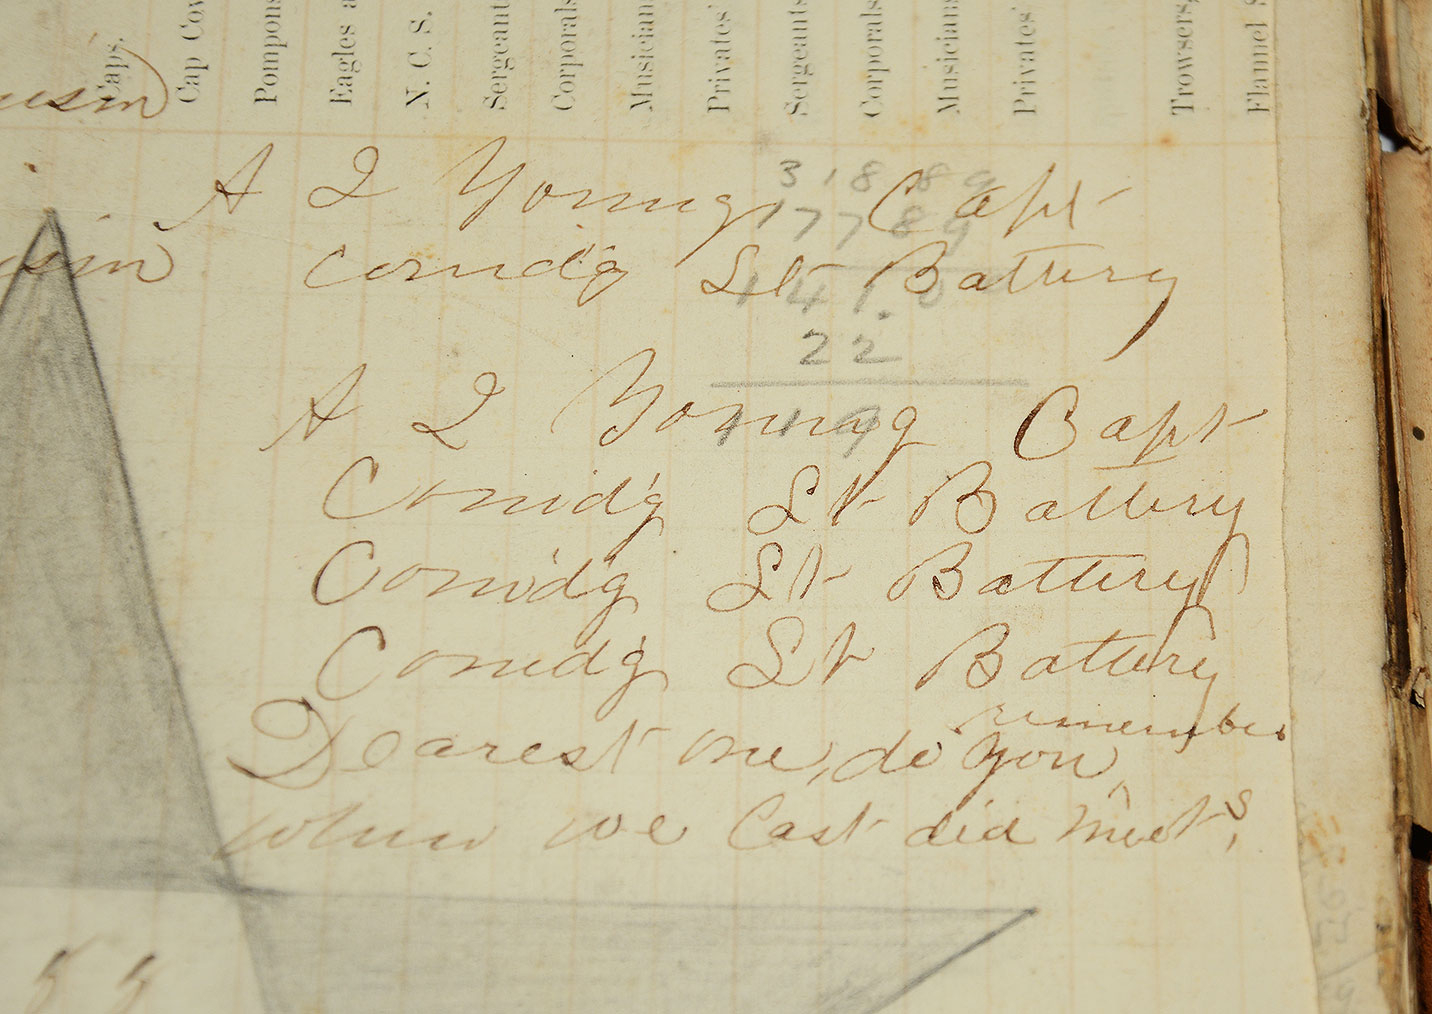 Caps.
Cap Cov
Pompons
Eagles a
N. C. S.
Sergeant
Corporals
Musician
Privates'
Sergeants
Corporals
Musicians
Privates'
Trowsers,
Flannel S
A Q Young Capt
31889
17789
Comdg Lt Battery
141.0
22
A Q Young Capt
119
Comd'g Lt Battery
Comd'g Lt Battery
Comd'g Lt Battery
remember
Dearest one, do you
when we last did meet,